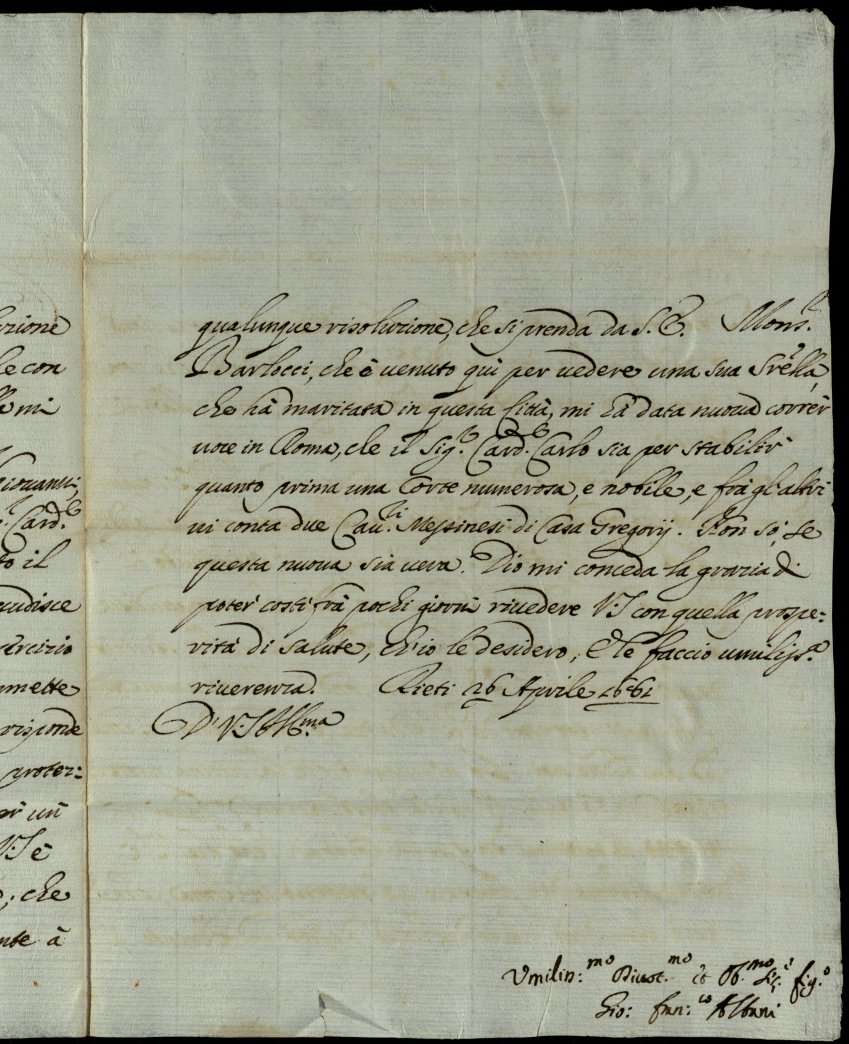 uzione
le con
mi
Giovanni,
Card.le
to il
audisce
ercizio
mette
risponde
proter:
per un
V.S è
; che
nte à
qualunque risoluzione, che si prenda da S. E. Mons.r
Barlocci, che è venuto qui per vedere una sua Srella,
che hà maritata in questa Città, mi hà data nuova correr
voce in Roma, che il Sig.r Card.le Carlo sia per stabilir
quanto prima una Corte numerosa, e nobile, e frà gl'altri
vi conta due Cav.ri Messinesi di Casa Gregorij. Non sò, se
questa nuova sia vera. Dio mi conceda la grazia di
poter costì frà pochi giorni rivedere V.S con quella prospe:
rità di salute, ch'io le desidero, e le faccio umiliss.a
riverenza. Rieti 26 Aprile 1661
D. V.S Ill.ma
Vmilis:mo Divot.mo et Ob.mo fig.o
Gio: Fran:co Albani